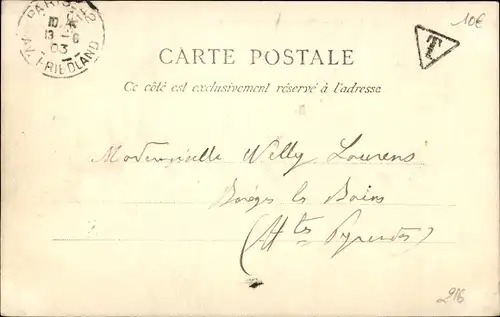 PARIS
10
13 -6
03
AV. FRIEDLAND
10€
T
CARTE POSTALE
Ce côté est exclusivement réservé à l'adresse
Mademoiselle Nelly Lourens
Barèges les Bains
(Htes Pyrenées)